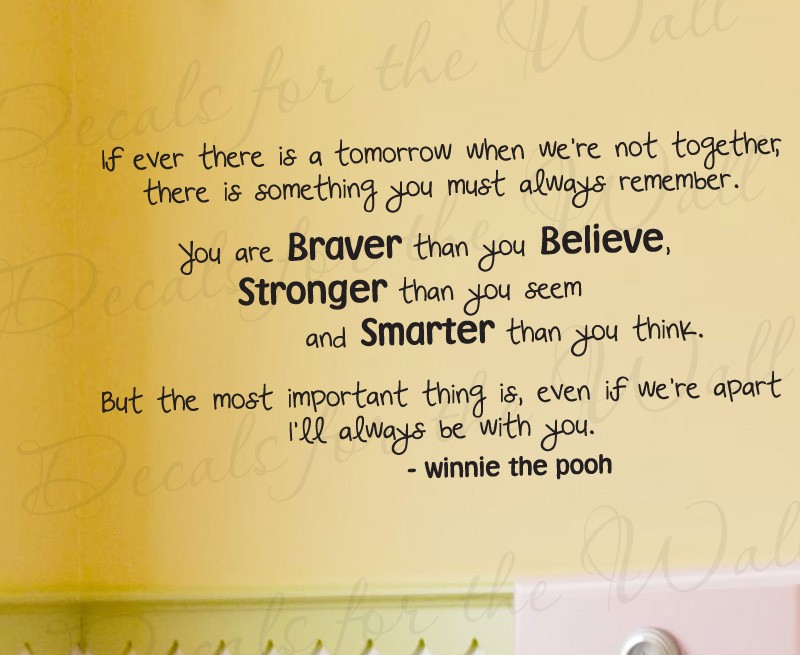 If ever there is a tomorrow when we're not together,
there is something you must always remember.
You are Braver than you Believe,
Stronger than you seem
and Smarter than you think.
But the most important thing is, even if we're apart
I'll always be with you.
- winnie the pooh
Decals for the Wall
Decals for the Wall
Decals for the Wall
Decals for the Wall